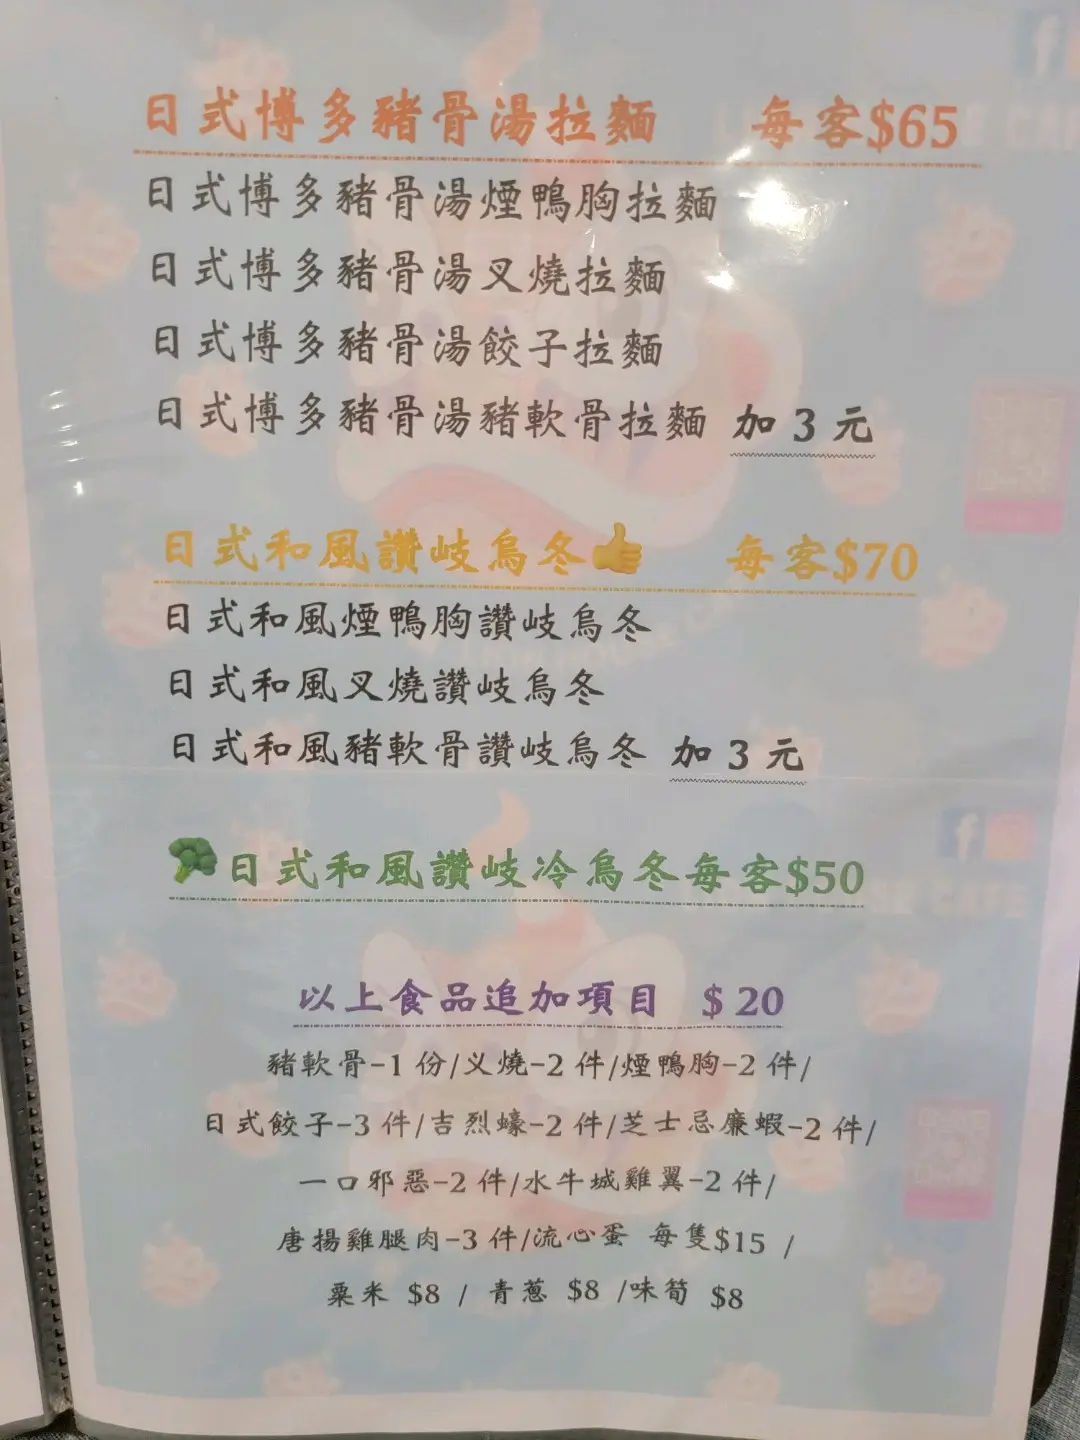 日式博多豬骨湯拉麵 每客$65
日式博多豬骨湯煙鴨胸拉麵
日式博多豬骨湯叉燒拉麵
日式博多豬骨湯餃子拉麵
日式博多豬骨湯豬軟骨拉麵 加3元
日式和風讚岐烏冬👍 每客$70
日式和風煙鴨胸讚岐烏冬
日式和風叉燒讚岐烏冬
日式和風豬軟骨讚岐烏冬 加3元
🥦日式和風讚岐冷烏冬每客$50
以上食品追加項目 $20
豬軟骨-1份/义燒-2件/煙鴨胸-2件/
日式餃子-3件/吉烈蠔-2件/芝士忌廉蝦-2件/
一口邪惡-2件/水牛城雞翼-2件/
唐揚雞腿肉-3件/流心蛋 每隻$15 /
粟米 $8 / 青蔥 $8 /味筍 $8